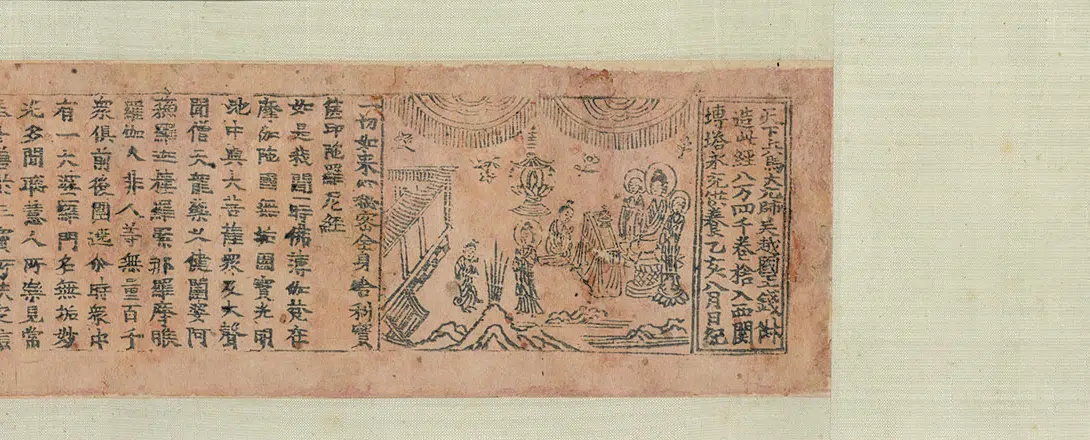 天下兵馬大元帥吳越國王錢俶
造此經八万四千卷捨入西關
塼塔永充供養乙亥八月日紀
一切如來心秘密全身舍利寶
篋印陀羅尼經
如是我聞一時佛薄伽梵在
摩伽陀國無垢園寶光明
池中與大菩薩眾及大聲
聞僧天龍藥叉健闥婆阿
蘇羅迦樓羅緊那羅摩睺
羅伽人非人等無量百千
衆俱前後圍遶尒時衆中
有一大婆羅門名無垢妙
光多聞聰慧人所樂見常